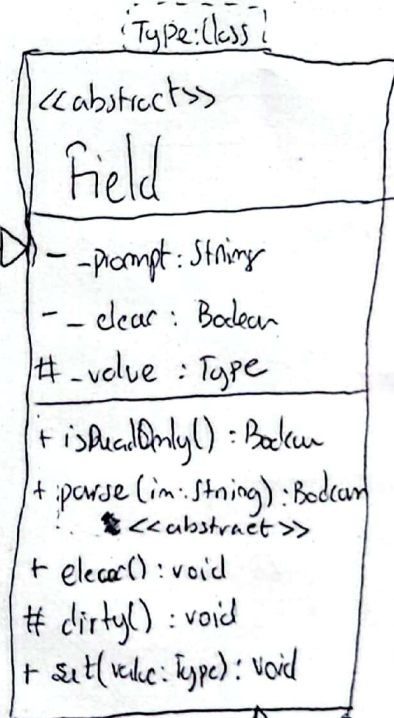 Type:Class
<<abstract>>
Field
- _prompt: String
- _clear: Boolean
# _value: Type
+ isReadOnly(): Boolean
+ parse(in: String): Boolean
<<abstract>>
+ clear(): void
# dirty(): void
+ set(value: Type): void